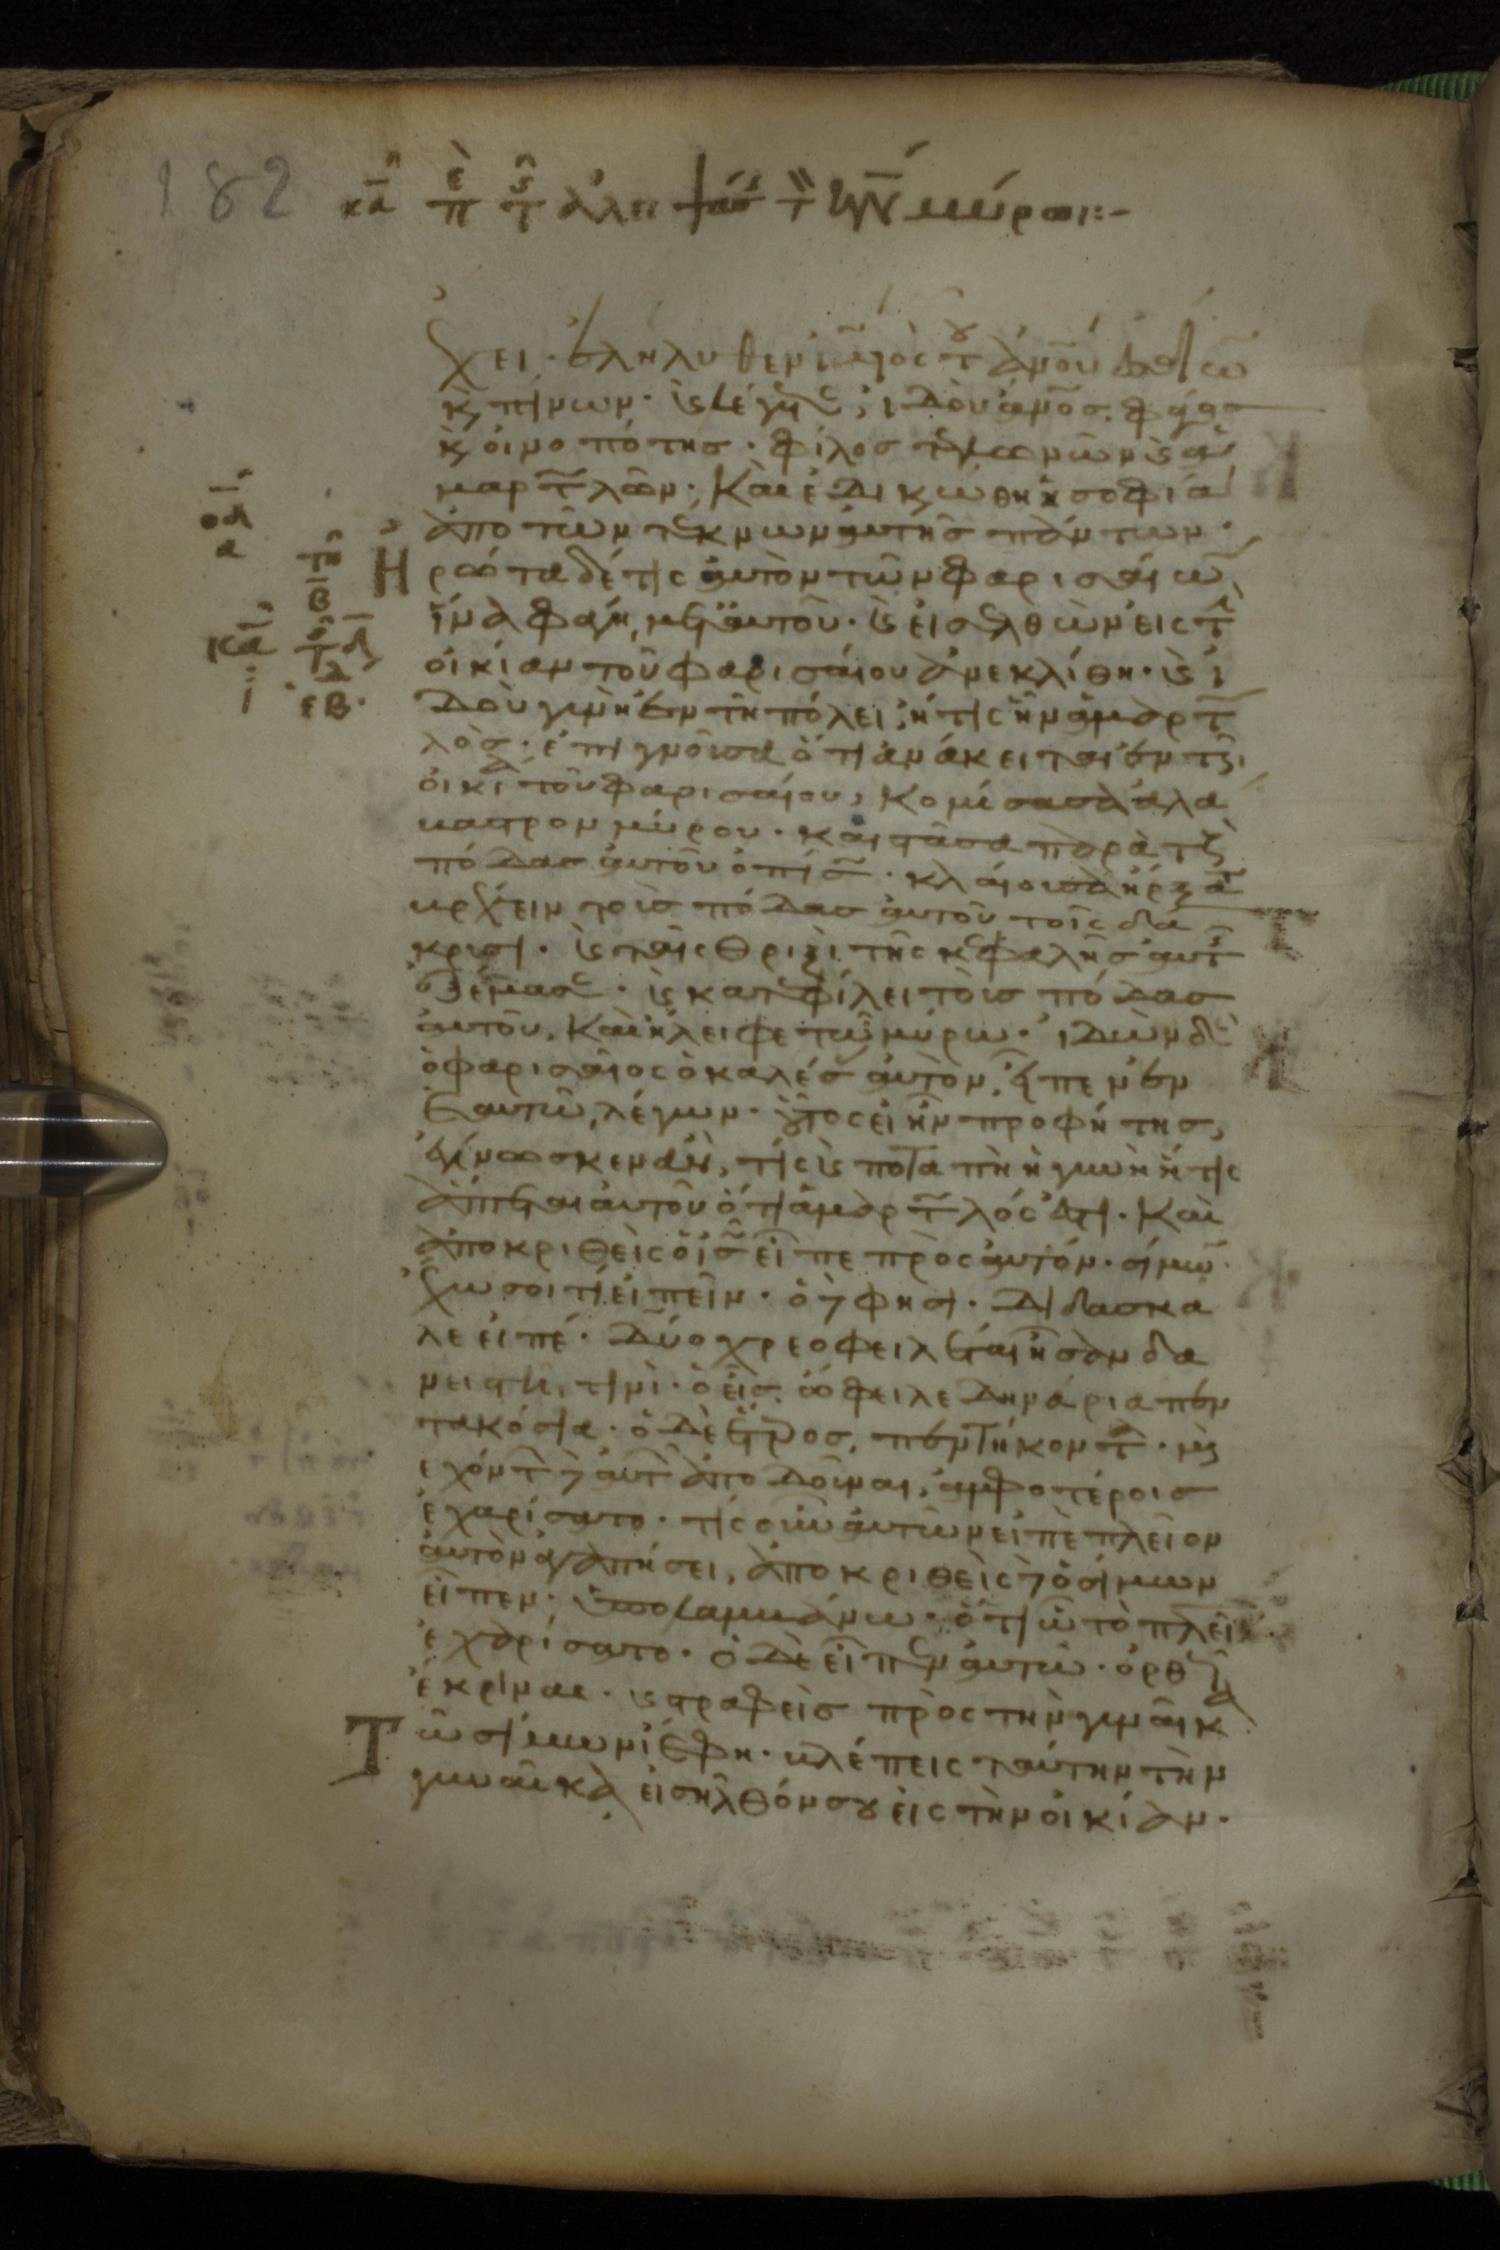 182
κα π τ αλει τ κν μύρωι:-
ἔχει· ἐλήλυθεν ὁ ὑιὸς τοῦ ἀνου ἐσθίων
κ πίνων· κ λέγετε, ἰδοὺ ἄνος φάγος
κ οἰνοπότης· φίλος τελωνῶν κ ἁ
μαρτωλῶν· Καὶ ἐδικαιώθη ἡ σοφία
ἀπὸ τῶν τέκνων αὐτῆς πάντων·
Ἠρώτα δέ τις αὐτὸν τῶν φαρισαίων
ἵνα φάγη μετ αὐτοῦ· κ εἰσελθὼν εἰς τὴν
οἰκίαν τοῦ φαρισαίου ἀνεκλίθη· κ ἰ
δοὺ γυνὴ ἐν τῆ πόλει, ἥτις ἦν ἁμαρτω
λὸς· ἐπιγνοῦσα ὅτι ἀνάκειται ἐν τῆ
οἰκία τοῦ φαρισαίου, Κομίσασα ἀλά
βαστρον μύρου· καὶ στᾶσα παρὰ τοὺς
πόδας αὐτοῦ ὀπίσω· κλαίουσα ἤρξατο
βρέχειν τοὺς πόδας αὐτοῦ τοῖς δά
κρυσι· κ ταῖς θριξὶ τῆς κεφαλῆς αὐτῆς
ἐξέμασε· κ κατεφίλει τοὺς πόδας
αὐτοῦ, Καὶ ἤλειφε τῶ μύρω· ἰδὼν δὲ
ὁ φαρισαῖος ὁ καλέσας αὐτὸν, εἶπεν ἐν
ἑαυτῶ λέγων· οὗτος εἰ ἦν προφήτης,
ἐγίνωσκεν ἂν, τίς κ ποταπὴ ἡ γυνὴ ἥτις
ἅπτεται αὐτοῦ ὅτι ἁμαρτωλός ἐστι· Καὶ
ἀποκριθεὶς ὁ ις εἶπε πρὸς αὐτόν· σίμων
ἔχω σοί τι εἰπεῖν· ὁ δὲ φησι· Διδάσκα
λε εἰπέ· Δύο χρεοφειλέται ἦσαν δα
νειστῆ τινὶ· ὁ εἷς ὤφειλε δηνάρια πεν
τακόσια· ὁ δὲ ἕτερος, πεντήκοντα· μὴ
ἐχόντων δὲ αὐτῶν ἀποδοῦναι, ἀμφοτέροις
ἐχαρίσατο· τίς οὖν αὐτῶν εἰπὲ πλεῖον
αὐτὸν ἀγαπήσει, ἀποκριθεὶς δὲ ὁ σίμων
εἶπεν· ὑπολαμβάνω· ὅτι ὧ τὸ πλεῖον
ἐχαρίσατο· ὁ δὲ εἶπεν αὐτῶ· ὀρθῶς
ἔκρινας· κ στραφεὶς πρὸς τὴν γυναῖκα
Τῶ σίμωνι ἔφη· βλέπεις ταύτην τὴν
γυναῖκα, εἰσῆλθόν σου εἰς τὴν οἰκίαν·